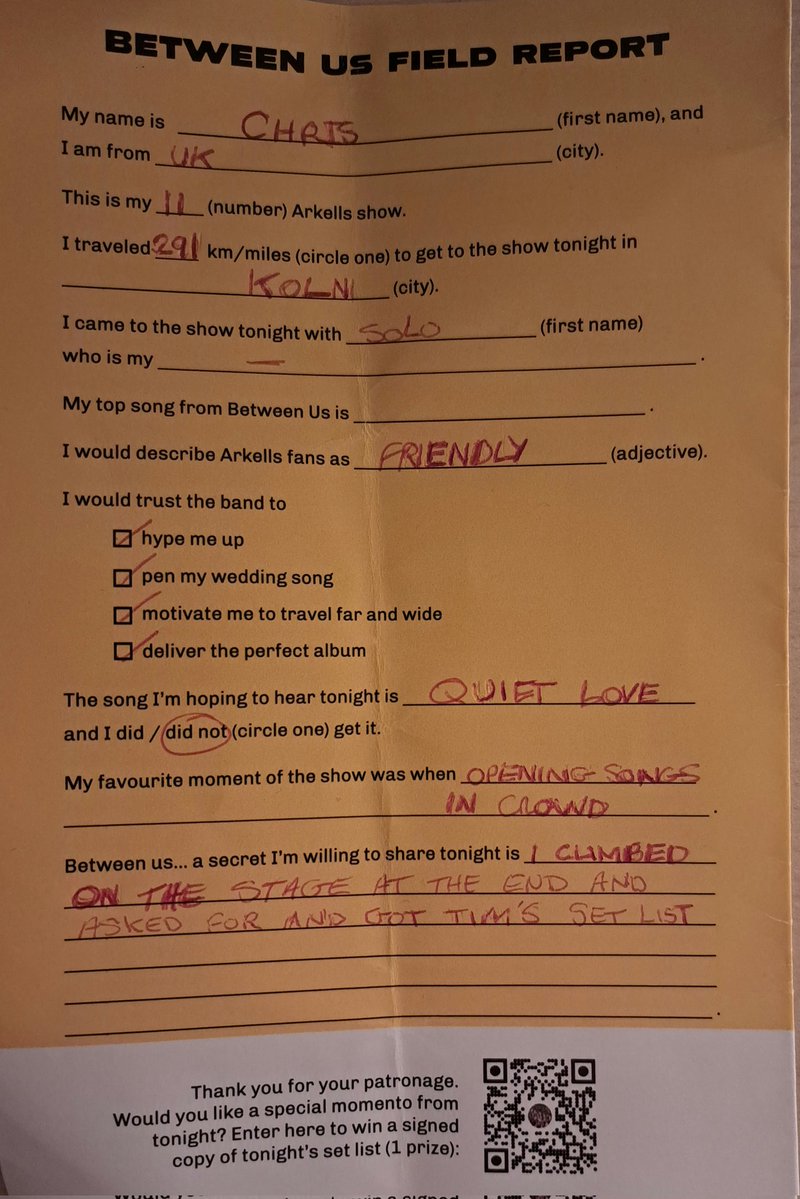 BETWEEN US FIELD REPORT
My name is CHRIS (first name), and
I am from UK (city).
This is my 11 (number) Arkells show.
I traveled 291 km/miles (circle one) to get to the show tonight in
KOLN (city).
I came to the show tonight with SOLO (first name)
who is my — .
My top song from Between Us is .
I would describe Arkells fans as FRIENDLY (adjective).
I would trust the band to
hype me up
pen my wedding song
motivate me to travel far and wide
deliver the perfect album
The song I'm hoping to hear tonight is QUIET LOVE
and I did / did not (circle one) get it.
My favourite moment of the show was when OPENING SONGS
IN CROWD .
Between us... a secret I'm willing to share tonight is I CLIMBED
ON THE STAGE AT THE END AND
ASKED FOR AND GOT TIM'S SET LIST
.
Thank you for your patronage.
Would you like a special momento from
tonight? Enter here to win a signed
copy of tonight's set list (1 prize):